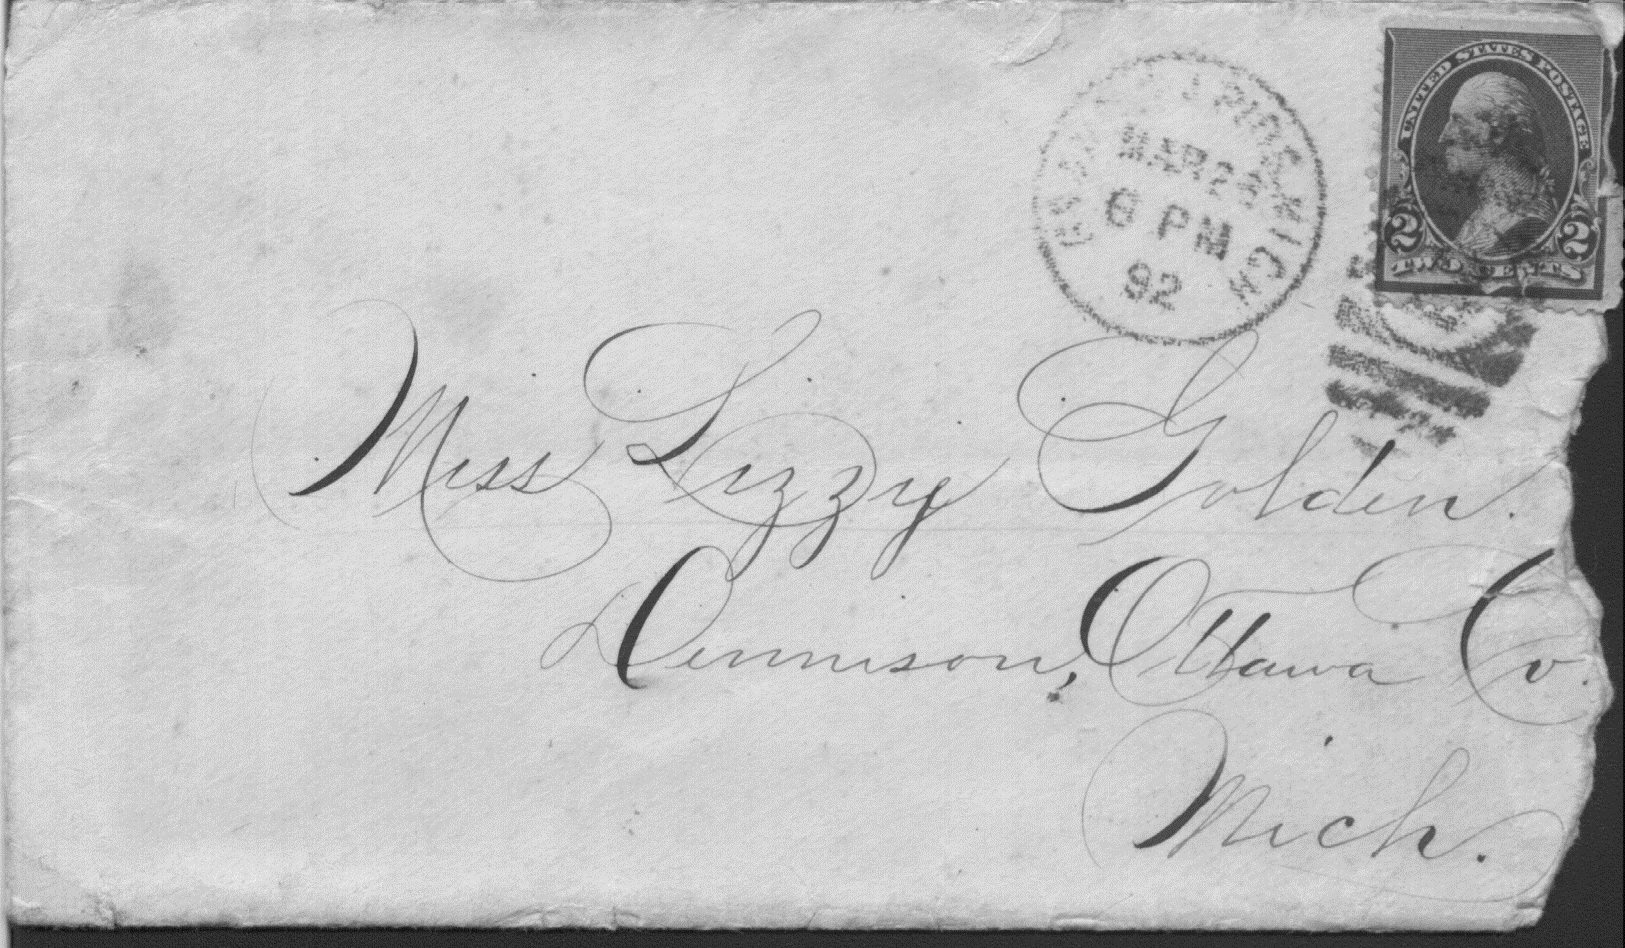 UNITED STATES POSTAGE
2 2
TWO CENTS
GRAND RAPIDS, MICH
MAR
6 PM
92
Miss Lizzy Golden.
Dennison, Ottawa Co.
Mich.